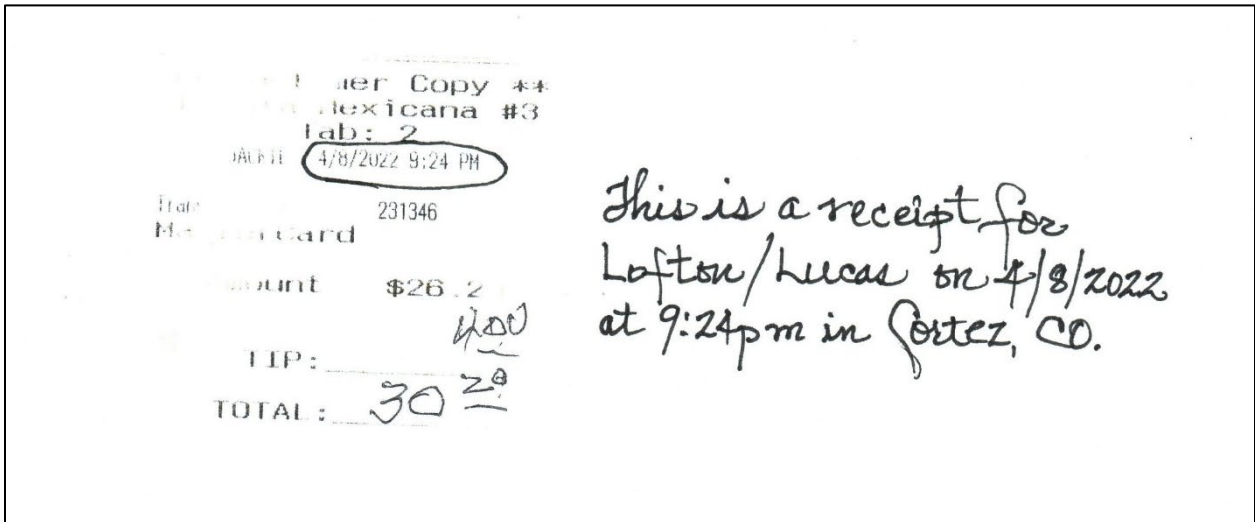 Copy **
Mexicana #3
Tab: 2
4/8/2022 9:24 PM
231346
MasterCard
Amount $26.2
4.00
TIP:
TOTAL: 30 20
This is a receipt for
Lofton/Lucas on 4/8/2022
at 9:24pm in Cortez, CO.